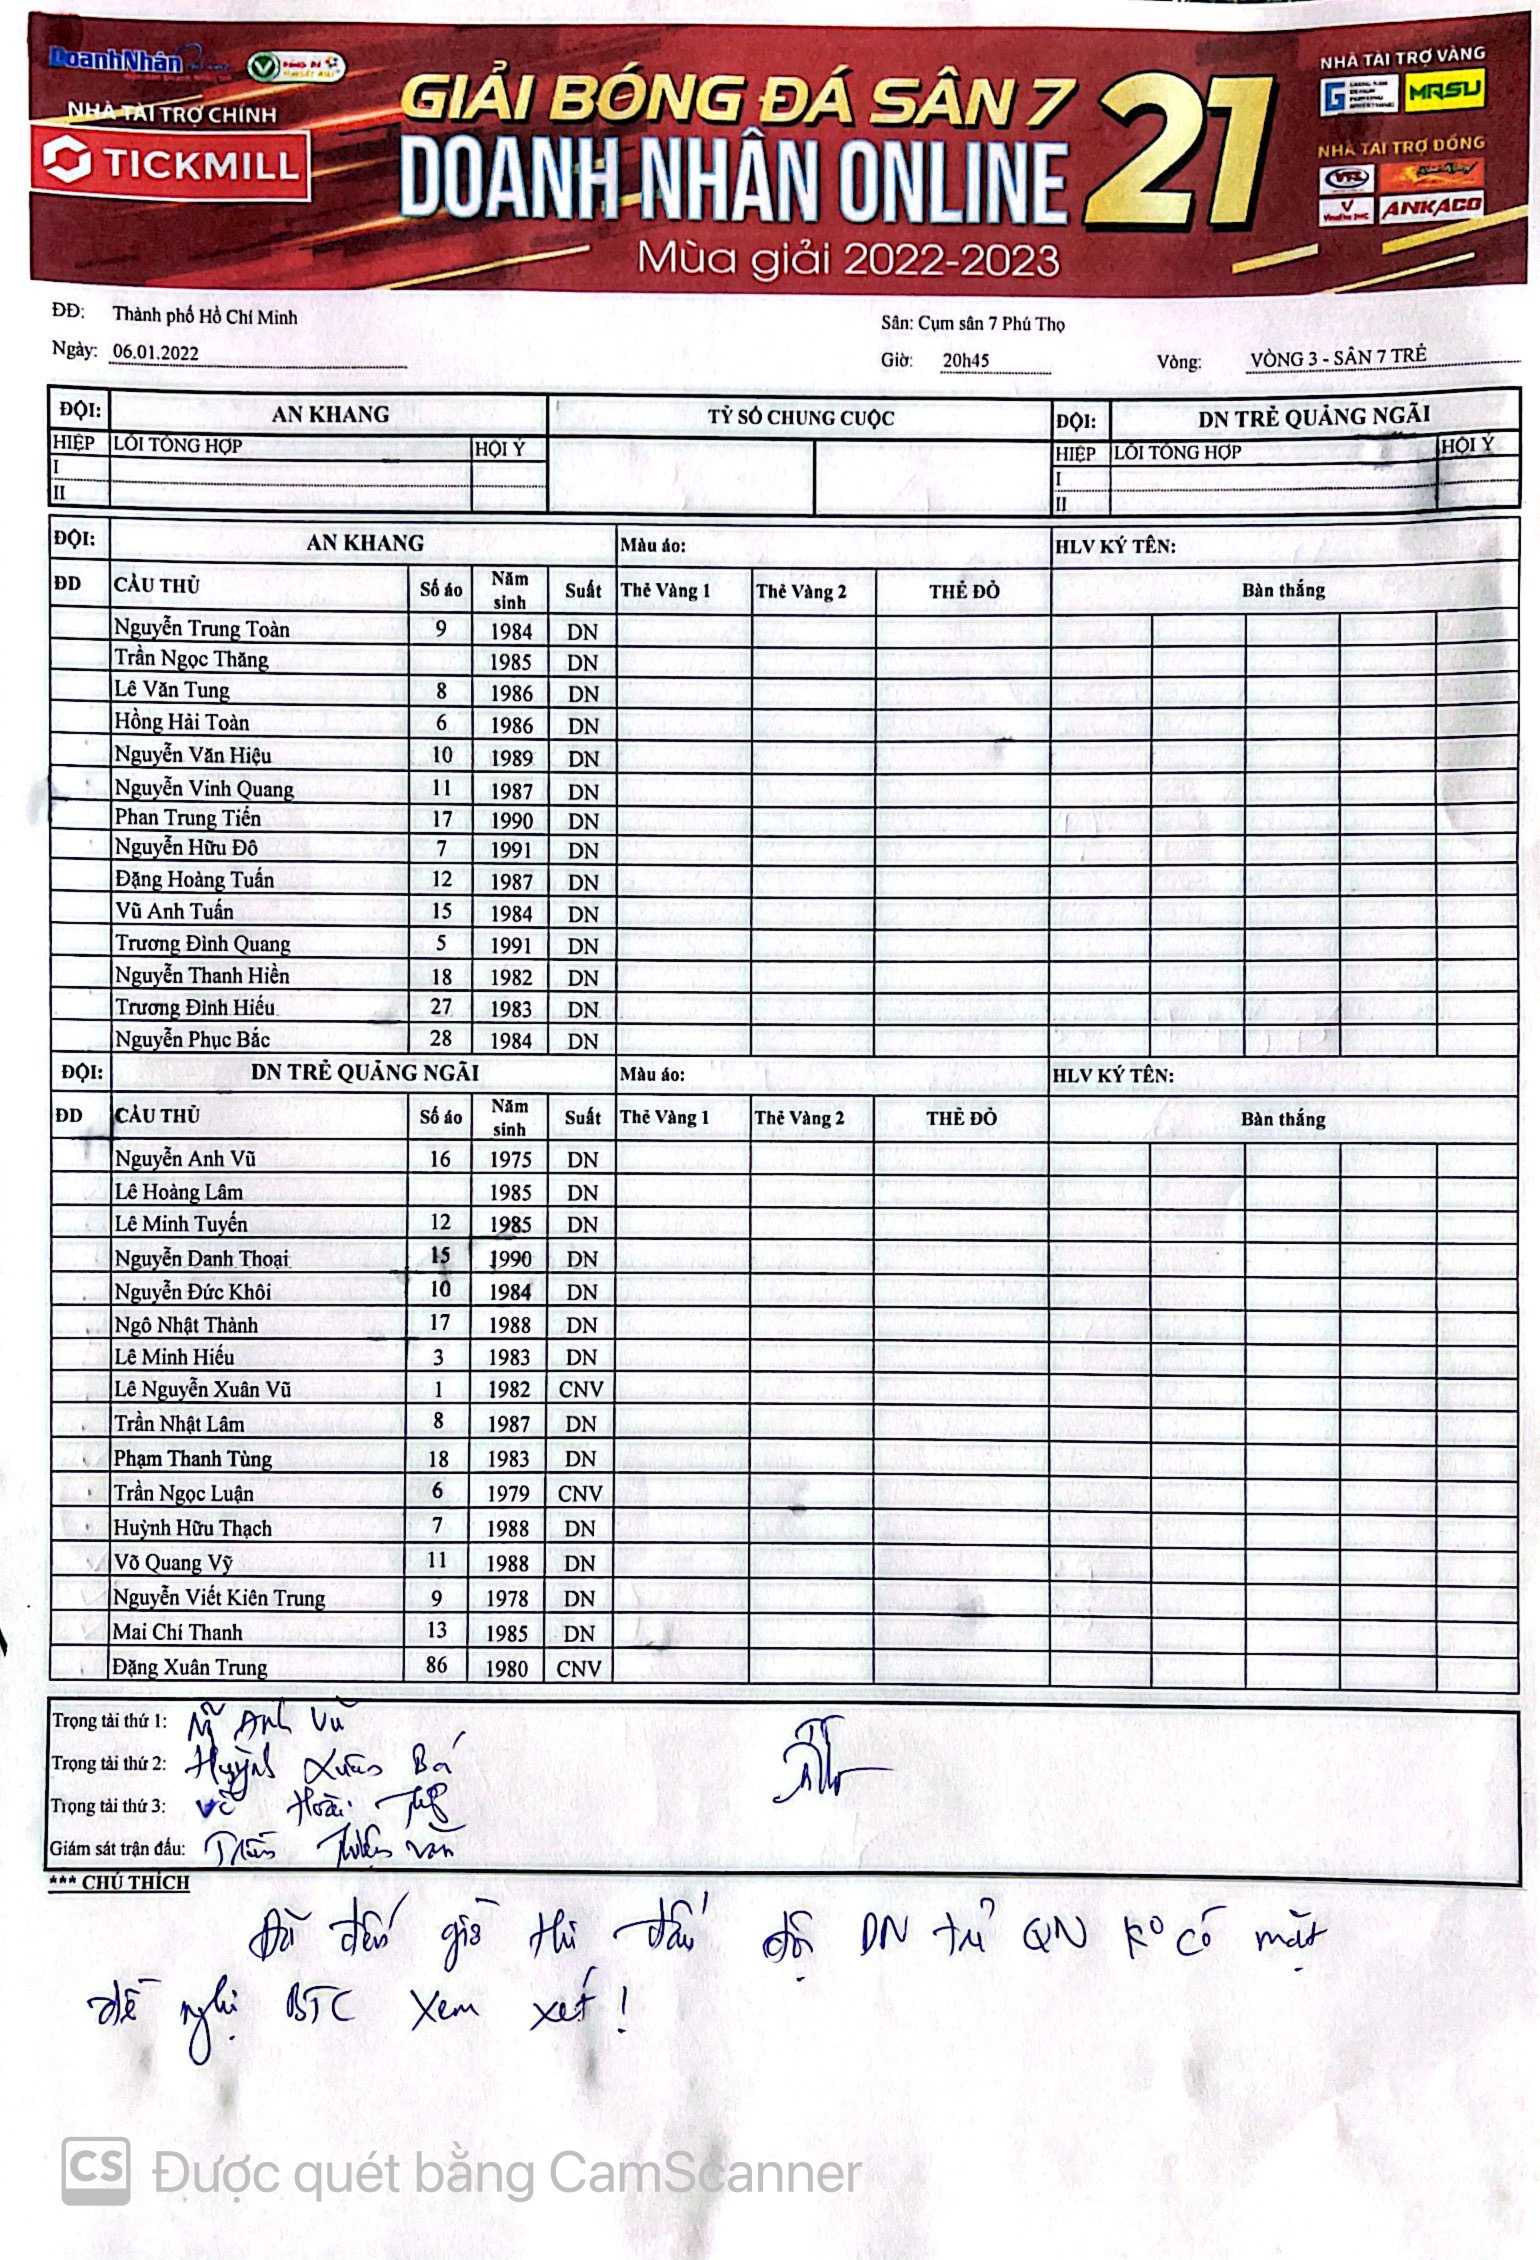 DoanhNhân
NHÀ TÀI TRỢ CHÍNH
TICKMILL
GIẢI BÓNG ĐÁ SÂN 7
DOANH NHÂN ONLINE 21
Mùa giải 2022-2023
NHÀ TÀI TRỢ VÀNG
MRSU
NHÀ TÀI TRỢ ĐỒNG
ANKACO
ĐĐ: Thành phố Hồ Chí Minh Sân: Cụm sân 7 Phú Thọ
Ngày: 06.01.2022 Giờ: 20h45 Vòng: VÒNG 3 - SÂN 7 TRẺ
ĐỘI: AN KHANG TỶ SỐ CHUNG CUỘC ĐỘI: DN TRẺ QUẢNG NGÃI
HIỆP LỖI TỔNG HỢP HỘI Ý HIỆP LỖI TỔNG HỢP HỘI Ý
I I
II II
ĐỘI: AN KHANG Màu áo: HLV KÝ TÊN:
ĐD CẦU THỦ Số áo Năm sinh Suất Thẻ Vàng 1 Thẻ Vàng 2 THẺ ĐỎ Bàn thắng
Nguyễn Trung Toàn 9 1984 DN
Trần Ngọc Thăng 1985 DN
Lê Văn Tung 8 1986 DN
Hồng Hải Toàn 6 1986 DN
Nguyễn Văn Hiệu 10 1989 DN
Nguyễn Vinh Quang 11 1987 DN
Phan Trung Tiến 17 1990 DN
Nguyễn Hữu Đô 7 1991 DN
Đặng Hoàng Tuấn 12 1987 DN
Vũ Anh Tuấn 15 1984 DN
Trương Đình Quang 5 1991 DN
Nguyễn Thanh Hiền 18 1982 DN
Trương Đình Hiếu 27 1983 DN
Nguyễn Phục Bắc 28 1984 DN
ĐỘI: DN TRẺ QUẢNG NGÃI Màu áo: HLV KÝ TÊN:
ĐD CẦU THỦ Số áo Năm sinh Suất Thẻ Vàng 1 Thẻ Vàng 2 THẺ ĐỎ Bàn thắng
Nguyễn Anh Vũ 16 1975 DN
Lê Hoàng Lâm 1985 DN
Lê Minh Tuyến 12 1985 DN
Nguyễn Danh Thoại 15 1990 DN
Nguyễn Đức Khôi 10 1984 DN
Ngô Nhật Thành 17 1988 DN
Lê Minh Hiếu 3 1983 DN
Lê Nguyễn Xuân Vũ 1 1982 CNV
Trần Nhật Lâm 8 1987 DN
Phạm Thanh Tùng 18 1983 DN
Trần Ngọc Luận 6 1979 CNV
Huỳnh Hữu Thạch 7 1988 DN
Võ Quang Vỹ 11 1988 DN
Nguyễn Viết Kiên Trung 9 1978 DN
Mai Chí Thanh 13 1985 DN
Đặng Xuân Trung 86 1980 CNV
Trọng tài thứ 1: Anh Vũ
Trọng tài thứ 2: Huỳnh Xuân Bá
Trọng tài thứ 3: Võ Hoài
Giám sát trận đấu: Trần Văn
*** CHÚ THÍCH
Đã đến giờ thi đấu đội DN trẻ QN ko có mặt
đề nghị BTC xem xét!
CS Được quét bằng CamScanner